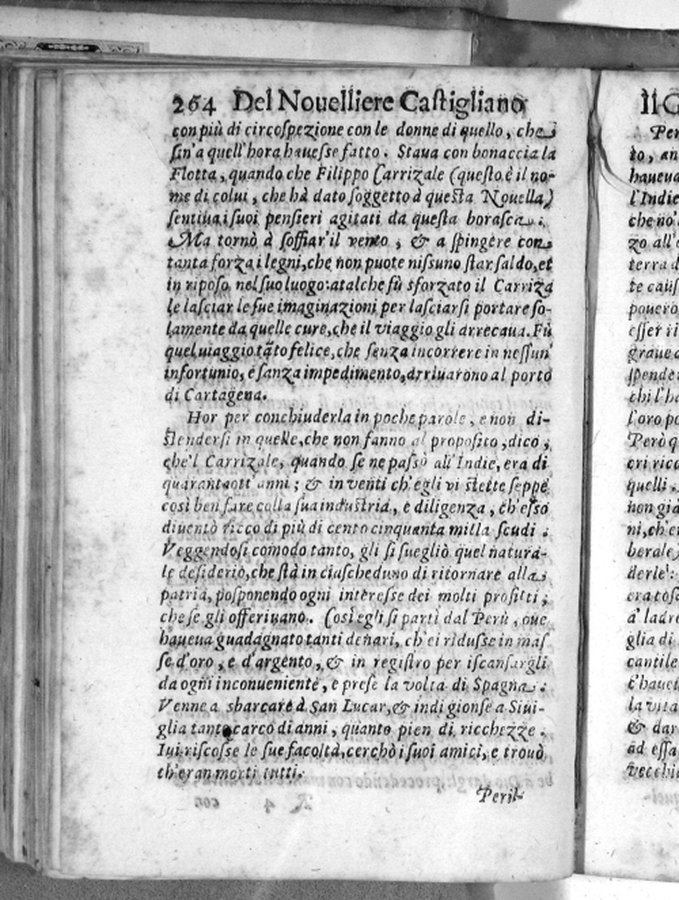 264 Del Nouelliere Castigliano
con più di circospezione con le donne di quello, che
sin'a quell'hora hauesse fatto. Staua con bonaccia la
Flotta, quando che Filippo Carrizale (questo è il no-
me di colui, che hà dato soggetto à questa Nouella)
sentiua i suoi pensieri agitati da questa borasca.
Ma tornò à soffiar'il vento, & a spingere con
tanta forza i legni, che non puote nissuno star saldo, et
in riposo, nel suo luogo: atalche fù sforzato il Carriza
le lasciar le sue imaginazioni per lasciarsi portare so-
lamente da quelle cure, che il viaggio gli arrecaua. Fù
quel viaggio tãto felice, che senza incorrere in nessun'
infortunio, e sanza impedimento, arriuarono al porto
di Cartagena.
Hor per conchiuderla in poche parole, e non di-
stendersi in quelle, che non fanno al proposito, dico,
che'l Carrizale, quando se ne passò all'Indie, era di
quarantaott'anni; & in venti ch'egli vi stette seppe
così ben fare colla sua industria, e diligenza, ch'esso
diuentò ricco di più di cento cinquanta milla scudi.
Veggendosi comodo tanto, gli si suegliò quel natura-
le desiderio, che stà in ciascheduno di ritornare alla
patria, posponendo ogni interesse dei molti profitti,
che se gli offeriuano. Così egli si partì dal Perù, oue
haueua guadagnato tanti denari, ch'ei ridusse in mas
se d'oro, e d'argento, & in registro per iscansargli
da ogni inconueniente, e prese la volta di Spagna.
Venne a sbarcare à San Lucar, & indi gionse a Siui-
glia tanto carco di anni, quanto pien di ricchezze.
Iui riscosse le sue facoltà, cerchò i suoi amici, e trouò
ch'eran morti tutti.
Peril-
Il G
Per
to, an
haueua
l'Indie
che nò'
zo all'e
terra d
te caus
pouero
esser ri
graue
spender
chi l'ha
l'oro po
Però q
cri rica
quelli.
non già
ni, ch'er
berale
derle:
era tosa
a' ladre
glia di
cantile
t'haueu
la vita
& dar
ad essa
vecchi